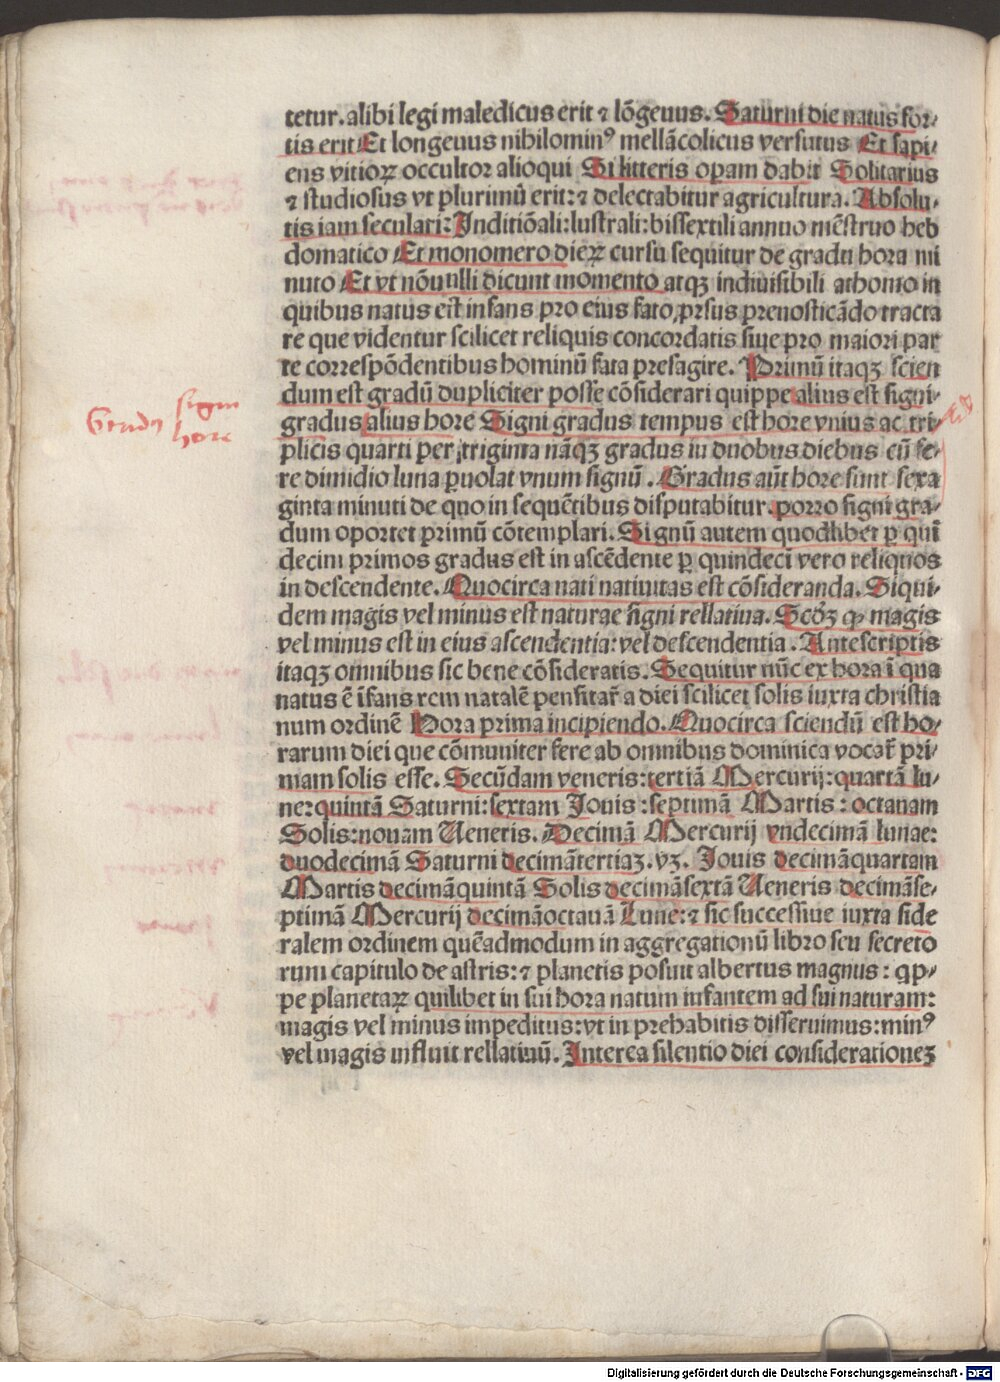 tetur. alibi legi maledicus erit ⁊ lōgeuus. Saturni die natus for⸗
tis erit Et longeuus nihilominꝰ mellācolicus versutus Et sapi⸗
ens vitioꝝ occultor alioqui Si litteris oꝑam dabit Solitarius
⁊ studiosus vt plurimū erit: ⁊ delectabitur agricultura. Absolu⸗
tis iam seculari: Inditiōali: lustrali: bissextili annuo mēstruo heb
domatico Et monomero dieꝝ cursu sequitur de gradu hora mi
nuto Et vt nōnulli dicunt momento atqꝫ indiuisibili athomo in
quibus natus est infans pro eius fato, ꝓsus prenosticādo tracta
re que videntur scilicet reliquis concordatis siue pro maiori par
te correspōdentibus hominū fata presagire. Primū itaqꝫ scien
dum est gradū dupliciter posse cōsiderari quippe alius est signi⸗
gradus alius hore Signi gradus tempus est hore vnius ac tri
plicis quarti per, triginta nāqꝫ gradus in duobus diebus cū fe⸗
re dimidio luna ꝑuolat vnum signū. Gradus aūt hore sunt sexa
ginta minuti de quo in sequētibus disputabitur. porro signi gra⸗
dum oportet primū cōtemplari. Signū autem quodlibet ꝑ quī
decim primos gradus est in ascēdente ꝑ quindecī vero reliquos
in descendente. Quocirca nati natiuitas est cōsideranda. Siqui⸗
dem magis vel minus est naturae signi rellatiua. Scďꝫ ꝙ magis
vel minus est in eius ascendentia: vel descendentia. Antescriptis
itaqꝫ omnibus sic bene cōsideratis. Sequitur nūc ex hora ī qua
natus ē īfans rem natalē pensitar̄ a diei scilicet solis iuxta christia
num ordinē Hora prima incipiendo. Quocirca sciendū est ho⸗
rarum diei que cōmuniter fere ab omnibus dominica vocat̄ pri⸗
mam solis esse. Secūdam veneris: tertiā Mercurij: quartā lu⸗
ne: quintā Saturni: sextam Jouis: septimā Martis: octauam
Solis: nonam Veneris. Decimā Mercurij vndecimā lunae:
duodecimā Saturni decimātertiaꝫ. vꝫ. Jouis decimāquartam
Martis decimāquintā Solis decimāsextā Veneris decimāse⸗
ptimā Mercurij decimāoctauā Lune: ⁊ sic successiue iuxta side
ralem ordinem quēadmodum in aggregationū libro seu secreto
rum capitulo de astris: ⁊ planetis posuit albertus magnus: qꝑ⸗
pe planetaꝝ quilibet in sui hora natum infantem ad sui naturam:
magis vel minus impeditus: vt in prehabitis disseruimus: minꝰ
vel magis influit rellatiuū. Interea silentio diei considerationeꝫ
Gradus signi
hore